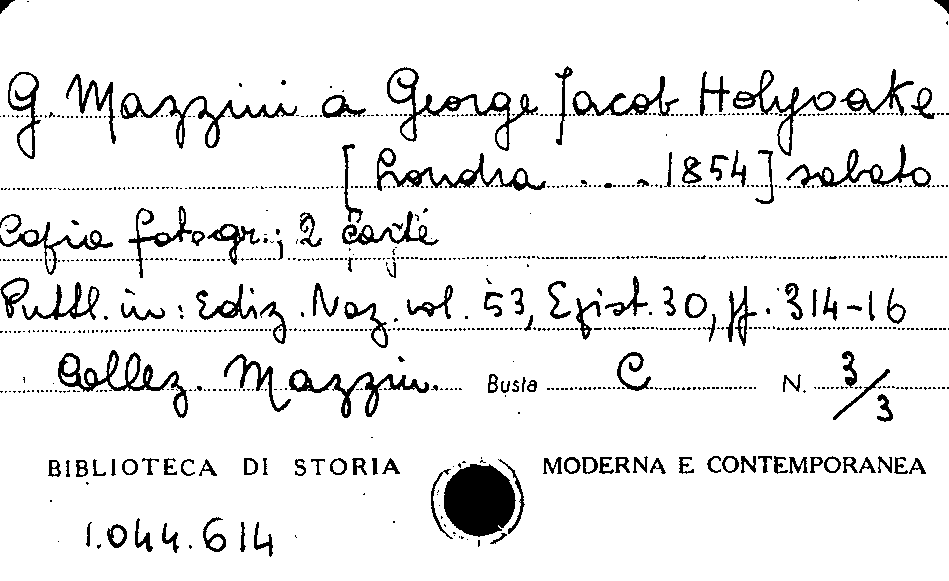 G. Mazzini a George Jacob Holyoake
[Londra ... 1854] sabato
Copia fotogr.; 2 carte
Pubbl. in: Ediz. Naz. vol. 53, Epist. 30, pp. 314-16
Collez. Mazzin. Busta C N. 3/3
BIBLIOTECA DI STORIA MODERNA E CONTEMPORANEA
1.044.614